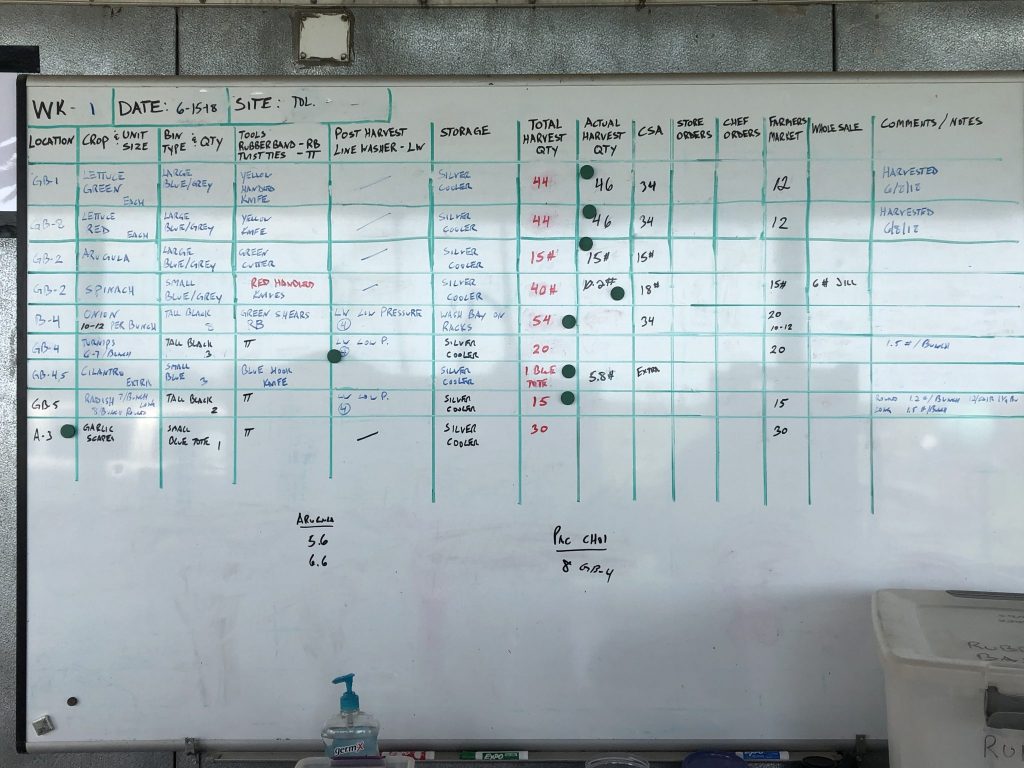 WK- 1 DATE: 6-15-18 SITE: TOL.
LOCATION CROP & UNIT SIZE BIN TYPE & QTY TOOLS RUBBERBAND - RB TWIST TIES - TT POST HARVEST LINE WASHER - LW STORAGE TOTAL HARVEST QTY ACTUAL HARVEST QTY CSA STORE ORDERS CHEF ORDERS FARMERS MARKET WHOLESALE COMMENTS / NOTES
GB-1 LETTUCE GREEN EACH LARGE BLUE/GREY YELLOW HANDLED KNIFE — SILVER COOLER 44 46 34 12 HARVESTED
GB-2 LETTUCE RED EACH LARGE BLUE/GREY YELLOW KNIFE — SILVER COOLER 44 46 34 12 HARVESTED
GB-2 ARUGULA LARGE BLUE/GREY GREEN CUTTER — SILVER COOLER 15# 15# 15#
GB-2 SPINACH SMALL BLUE/GREY RED HANDLED KNIVES — SILVER COOLER 40# 18# 15# 6# JILL
B-4 ONION 10-12 PER BUNCH TALL BLACK GREEN SHEARS RB LW LOW PRESSURE 4 WASH BAY ON RACKS 54 34 20 10-12
GB-4 TURNIPS 6-7/BUNCH TALL BLACK 3 TT LW LOW P. SILVER COOLER 20 20 1.5#/BUNCH
GB-4,5 CILANTRO EXTRA SMALL BLUE 3 BLUE HOOK KNIFE SILVER COOLER 1 BLUE TOTE. 5.8# EXTRA
GB-5 RADISH 7/BUNCH LONG 8/BUNCH ROUND TALL BLACK 2 TT LW LOW P. 4 SILVER COOLER 15 15 ROUND 1.2#/BUNCH LONG 1.5#/BUNCH
A-3 GARLIC SCAPES SMALL BLUE TOTE 1 TT — SILVER COOLER 30 30
ARUGULA
5.6
6.6
PAC CHOI
8 GB-4
germ-X
EXPO